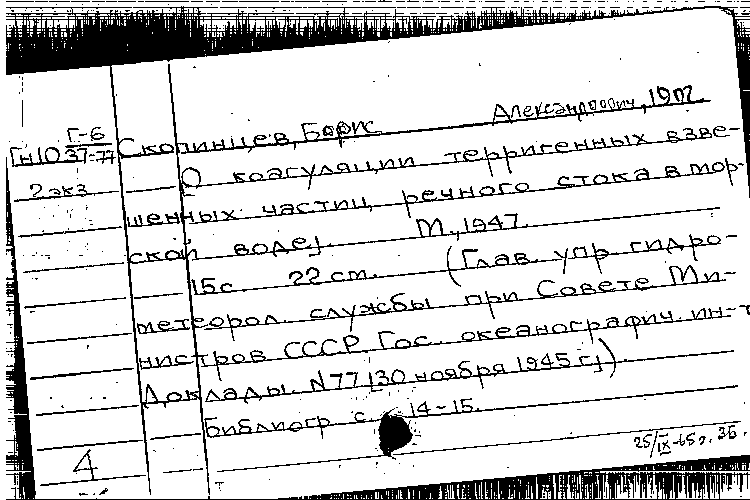 Гн10 Г-6
37-77
Скопинцев, Борис Александрович, 1902.
2 экз
О коагуляции терригенных взве-
шенных частиц речного стока в мор-
ской воде].
М., 1947.
15 с. 22 см. (Глав. упр гидро-
метеорол. службы при Совете Ми-
нистров СССР. Гос. океанографич. ин-т
Доклады. N 77 [30 ноября 1945 г.])
Библиогр с. 14-15.
4
25/IX-65г.